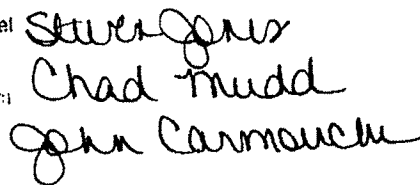 Steven Jones
Chad Mudd
John Carmouche